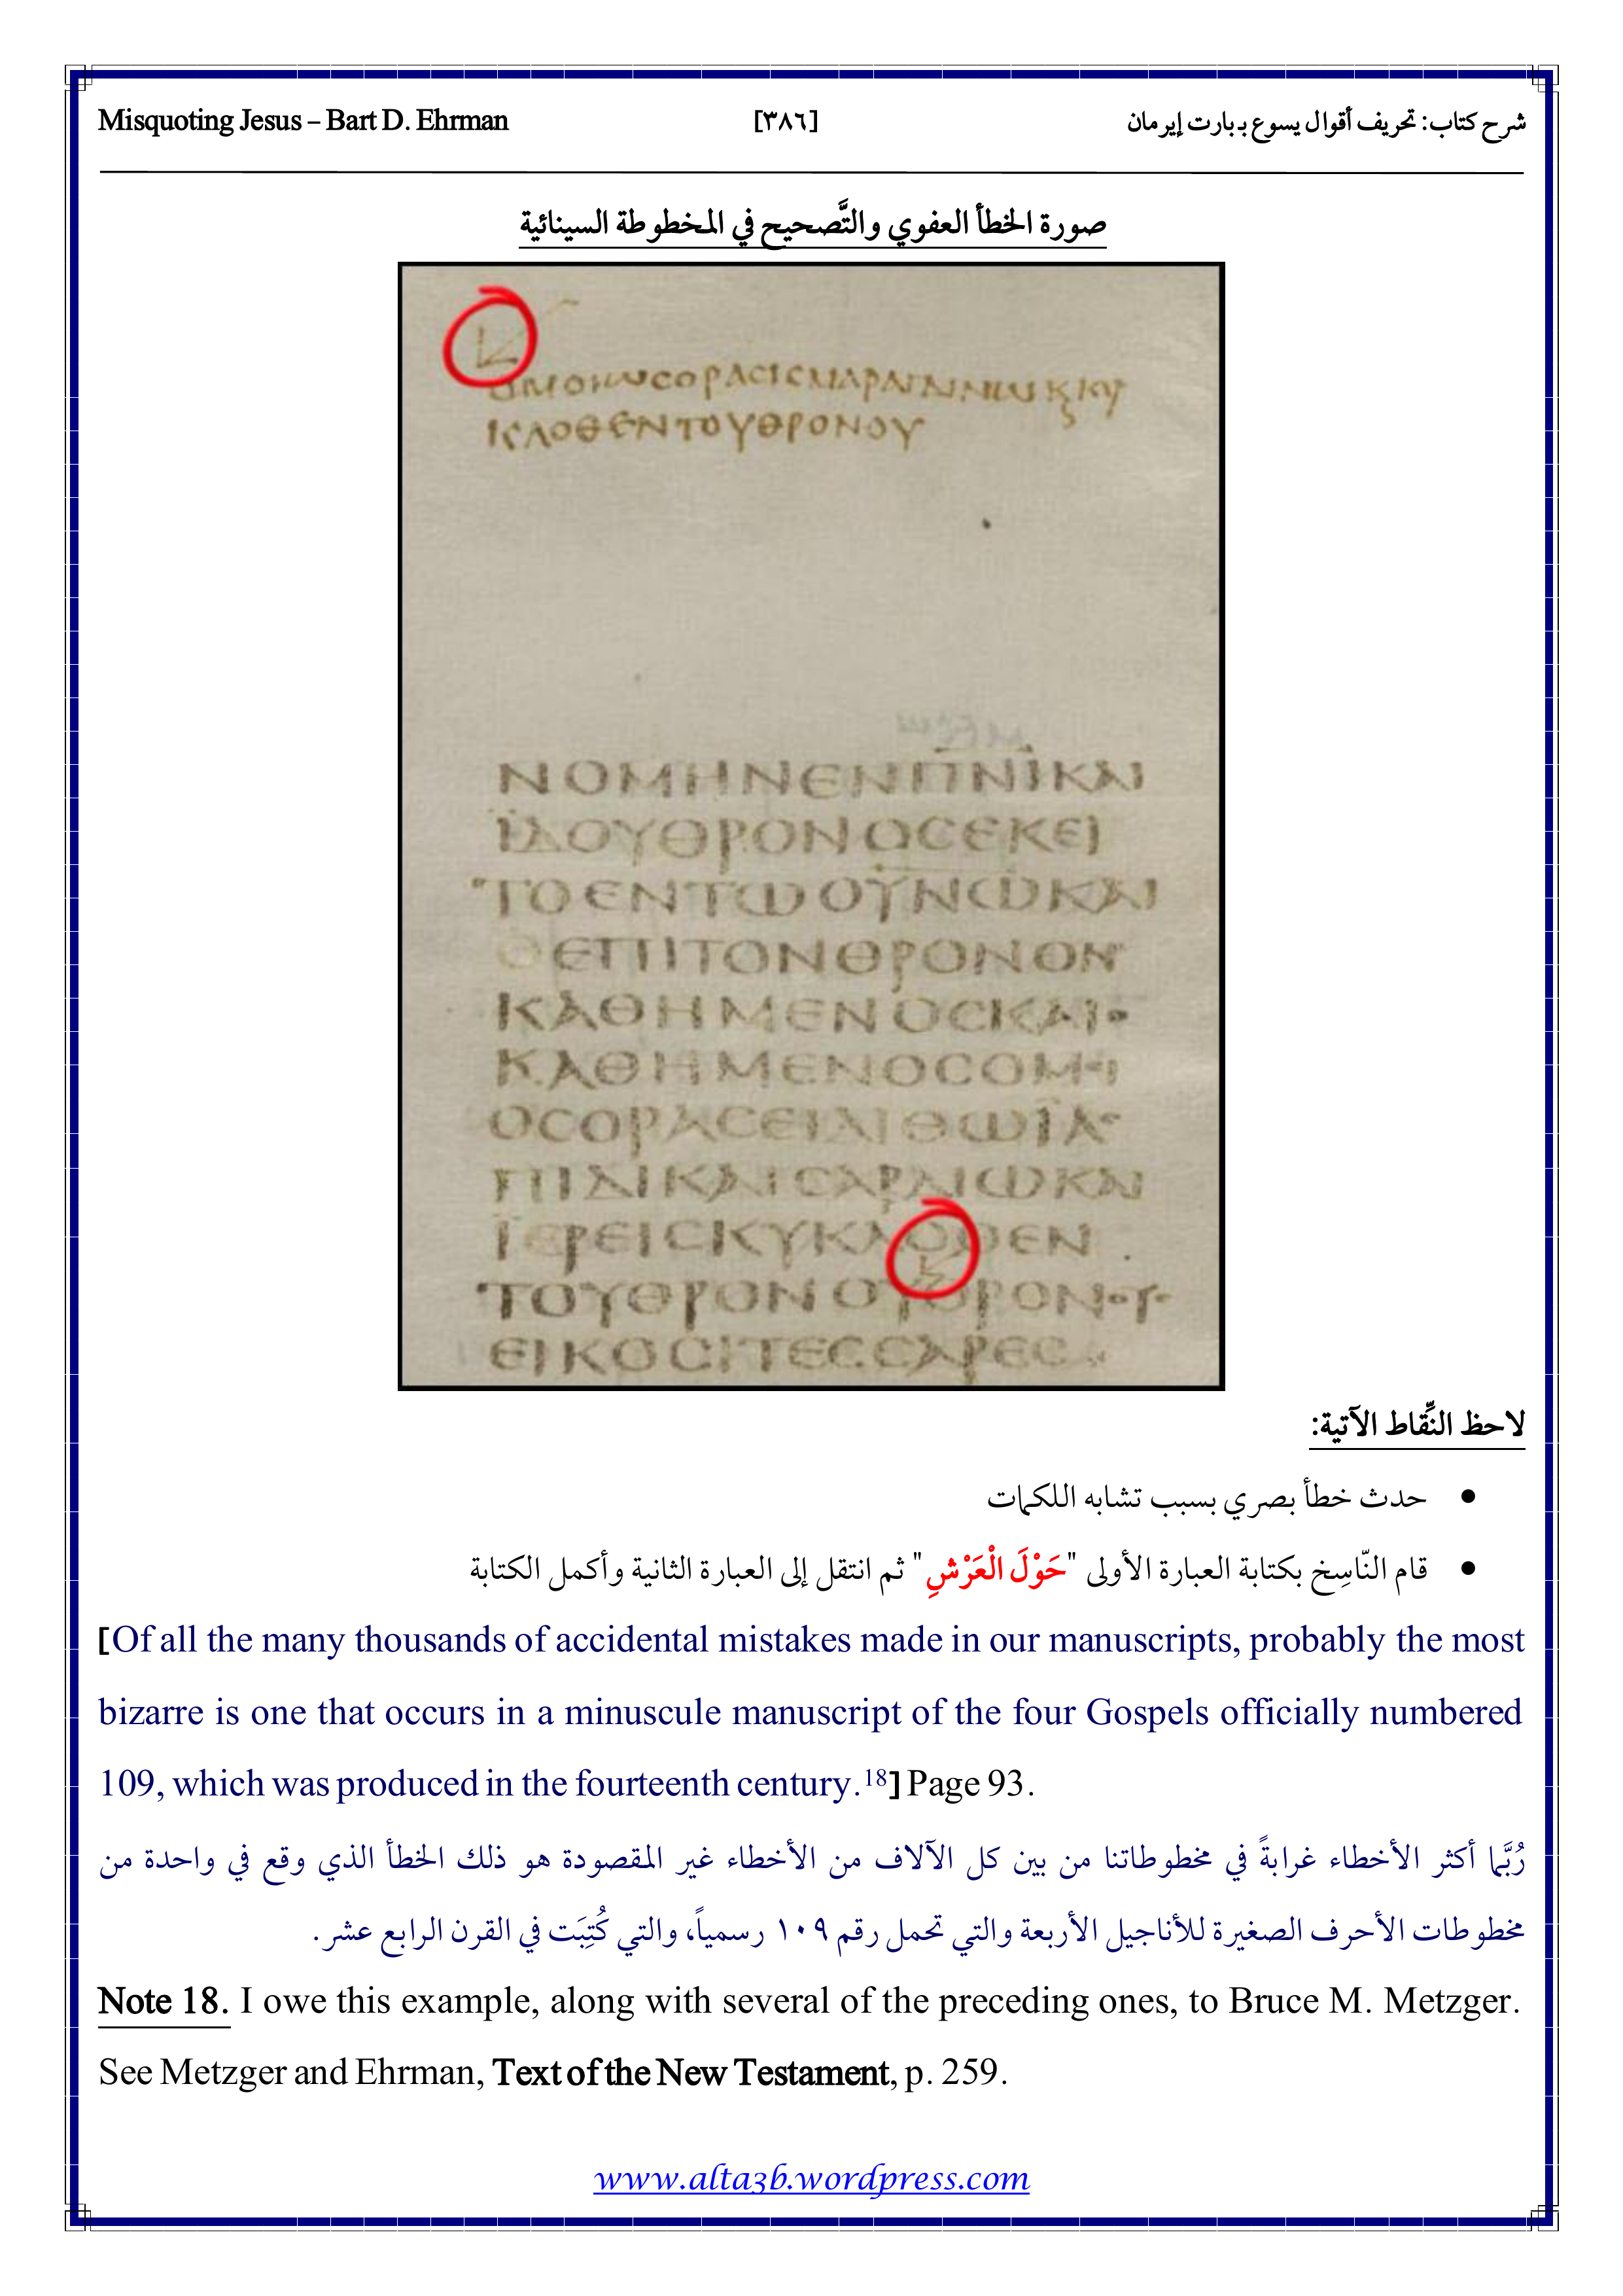 Misquoting Jesus – Bart D. Ehrman [٣٨٦] شرح كتاب: تحريف أقوال يسوع بـ بارت إيرمان
صورة الخطأ العفوي والتَّصحيح في المخطوطة السينائية
ΚΛΟΘΕΝΤΟΥΘΡΟΝΟΥ
ΝΟΜΗΝΕΝΠΝΙΚΑΙ
ΪΔΟΥΘΡΟΝΟCΕΚΕΙ
ΤΟΕΝΤΩΟΥΝΩΚΑΙ
ΟΕΠΙΤΟΝΘΡΟΝΟΝ
ΚΑΘΗΜΕΝΟCΚΑΙ
ΚΑΘΗΜΕΝΟCΟΜΟΙ
ΟCΟΡΑCΕΙΛΙΘΩΪΑC
ΠΙΔΙΚΑΙCΑΡΔΙΩΚΑΙ
ΪΕΡΕΙCΚΥΚΛΟΘΕΝ
ΤΟΥΘΡΟΝΟΥΘΡΟΝΟΥC
ΕΙΚΟCΙΤΕCCΑΡΕC
لاحظ النِّقاط الآتية:
• حدث خطأ بصري بسبب تشابه اللكمات
• قام النّاسِخ بكتابة العبارة الأولى "حَوْلَ الْعَرْشِ" ثم انتقل إلى العبارة الثانية وأكمل الكتابة
[Of all the many thousands of accidental mistakes made in our manuscripts, probably the most
bizarre is one that occurs in a minuscule manuscript of the four Gospels officially numbered
109, which was produced in the fourteenth century.¹⁸] Page 93.
رُبَّما أكثر الأخطاء غرابةً في مخطوطاتنا من بين كل الآلاف من الأخطاء غير المقصودة هو ذلك الخطأ الذي وقع في واحدة من
مخطوطات الأحرف الصغيرة للأناجيل الأربعة والتي تحمل رقم ١٠٩ رسمياً، والتي كُتِبَت في القرن الرابع عشر.
Note 18. I owe this example, along with several of the preceding ones, to Bruce M. Metzger.
See Metzger and Ehrman, Text of the New Testament, p. 259.
www.alta3b.wordpress.com